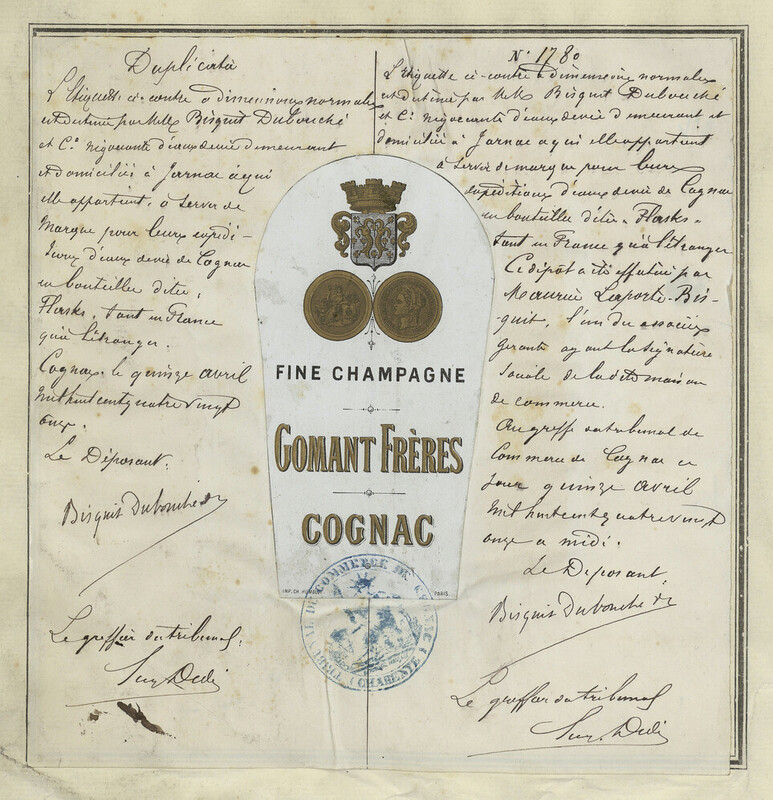 Duplicata
L'Etiquette ci-contre à dimensions normales
est destinée par MM Bisquit Dubouché
et Cº. négociants d'eaux de vie demeurant
et domiciliés à Jarnac à qui
elle appartient, à servir de
Marque pour leurs expédi-
tions d'eaux de vie de Cognac
en bouteilles dites,
Flasks, tant en France
qu'à l'étranger.
Cognac, le quinze avril
mil huit cent quatre vingt
onze.
Le Déposant.
Bisquit Dubouché & Cº
Le greffier du tribunal,
FINE CHAMPAGNE
GOMANT FRÈRES
COGNAC
IMP. CH.
PARIS
TRIBUNAL DE COMMERCE DE COGNAC
(CHARENTE)
Nº 1780
L'Etiquette ci-contre à dimensions normales
est destinée par MM Bisquit Dubouché
et Cº. négociants d'eaux de vie demeurant et
domiciliés à Jarnac à qui elle appartient
à servir de marque pour leurs
expéditions d'eaux de vie de Cognac
en bouteilles dites « Flasks »
tant en France qu'à l'étranger
Ce dépôt a été effectué par
Maurice Laporte-Bis-
quit, l'un des associés
gérants ayant la signature
sociale de la dite maison
de commerce.
Au greffe du tribunal de
Commerce de Cognac ce
jour quinze avril
mil huit cent quatre vingt
onze à midi.
Le Déposant,
Bisquit Dubouché & Cº
Le greffier du tribunal